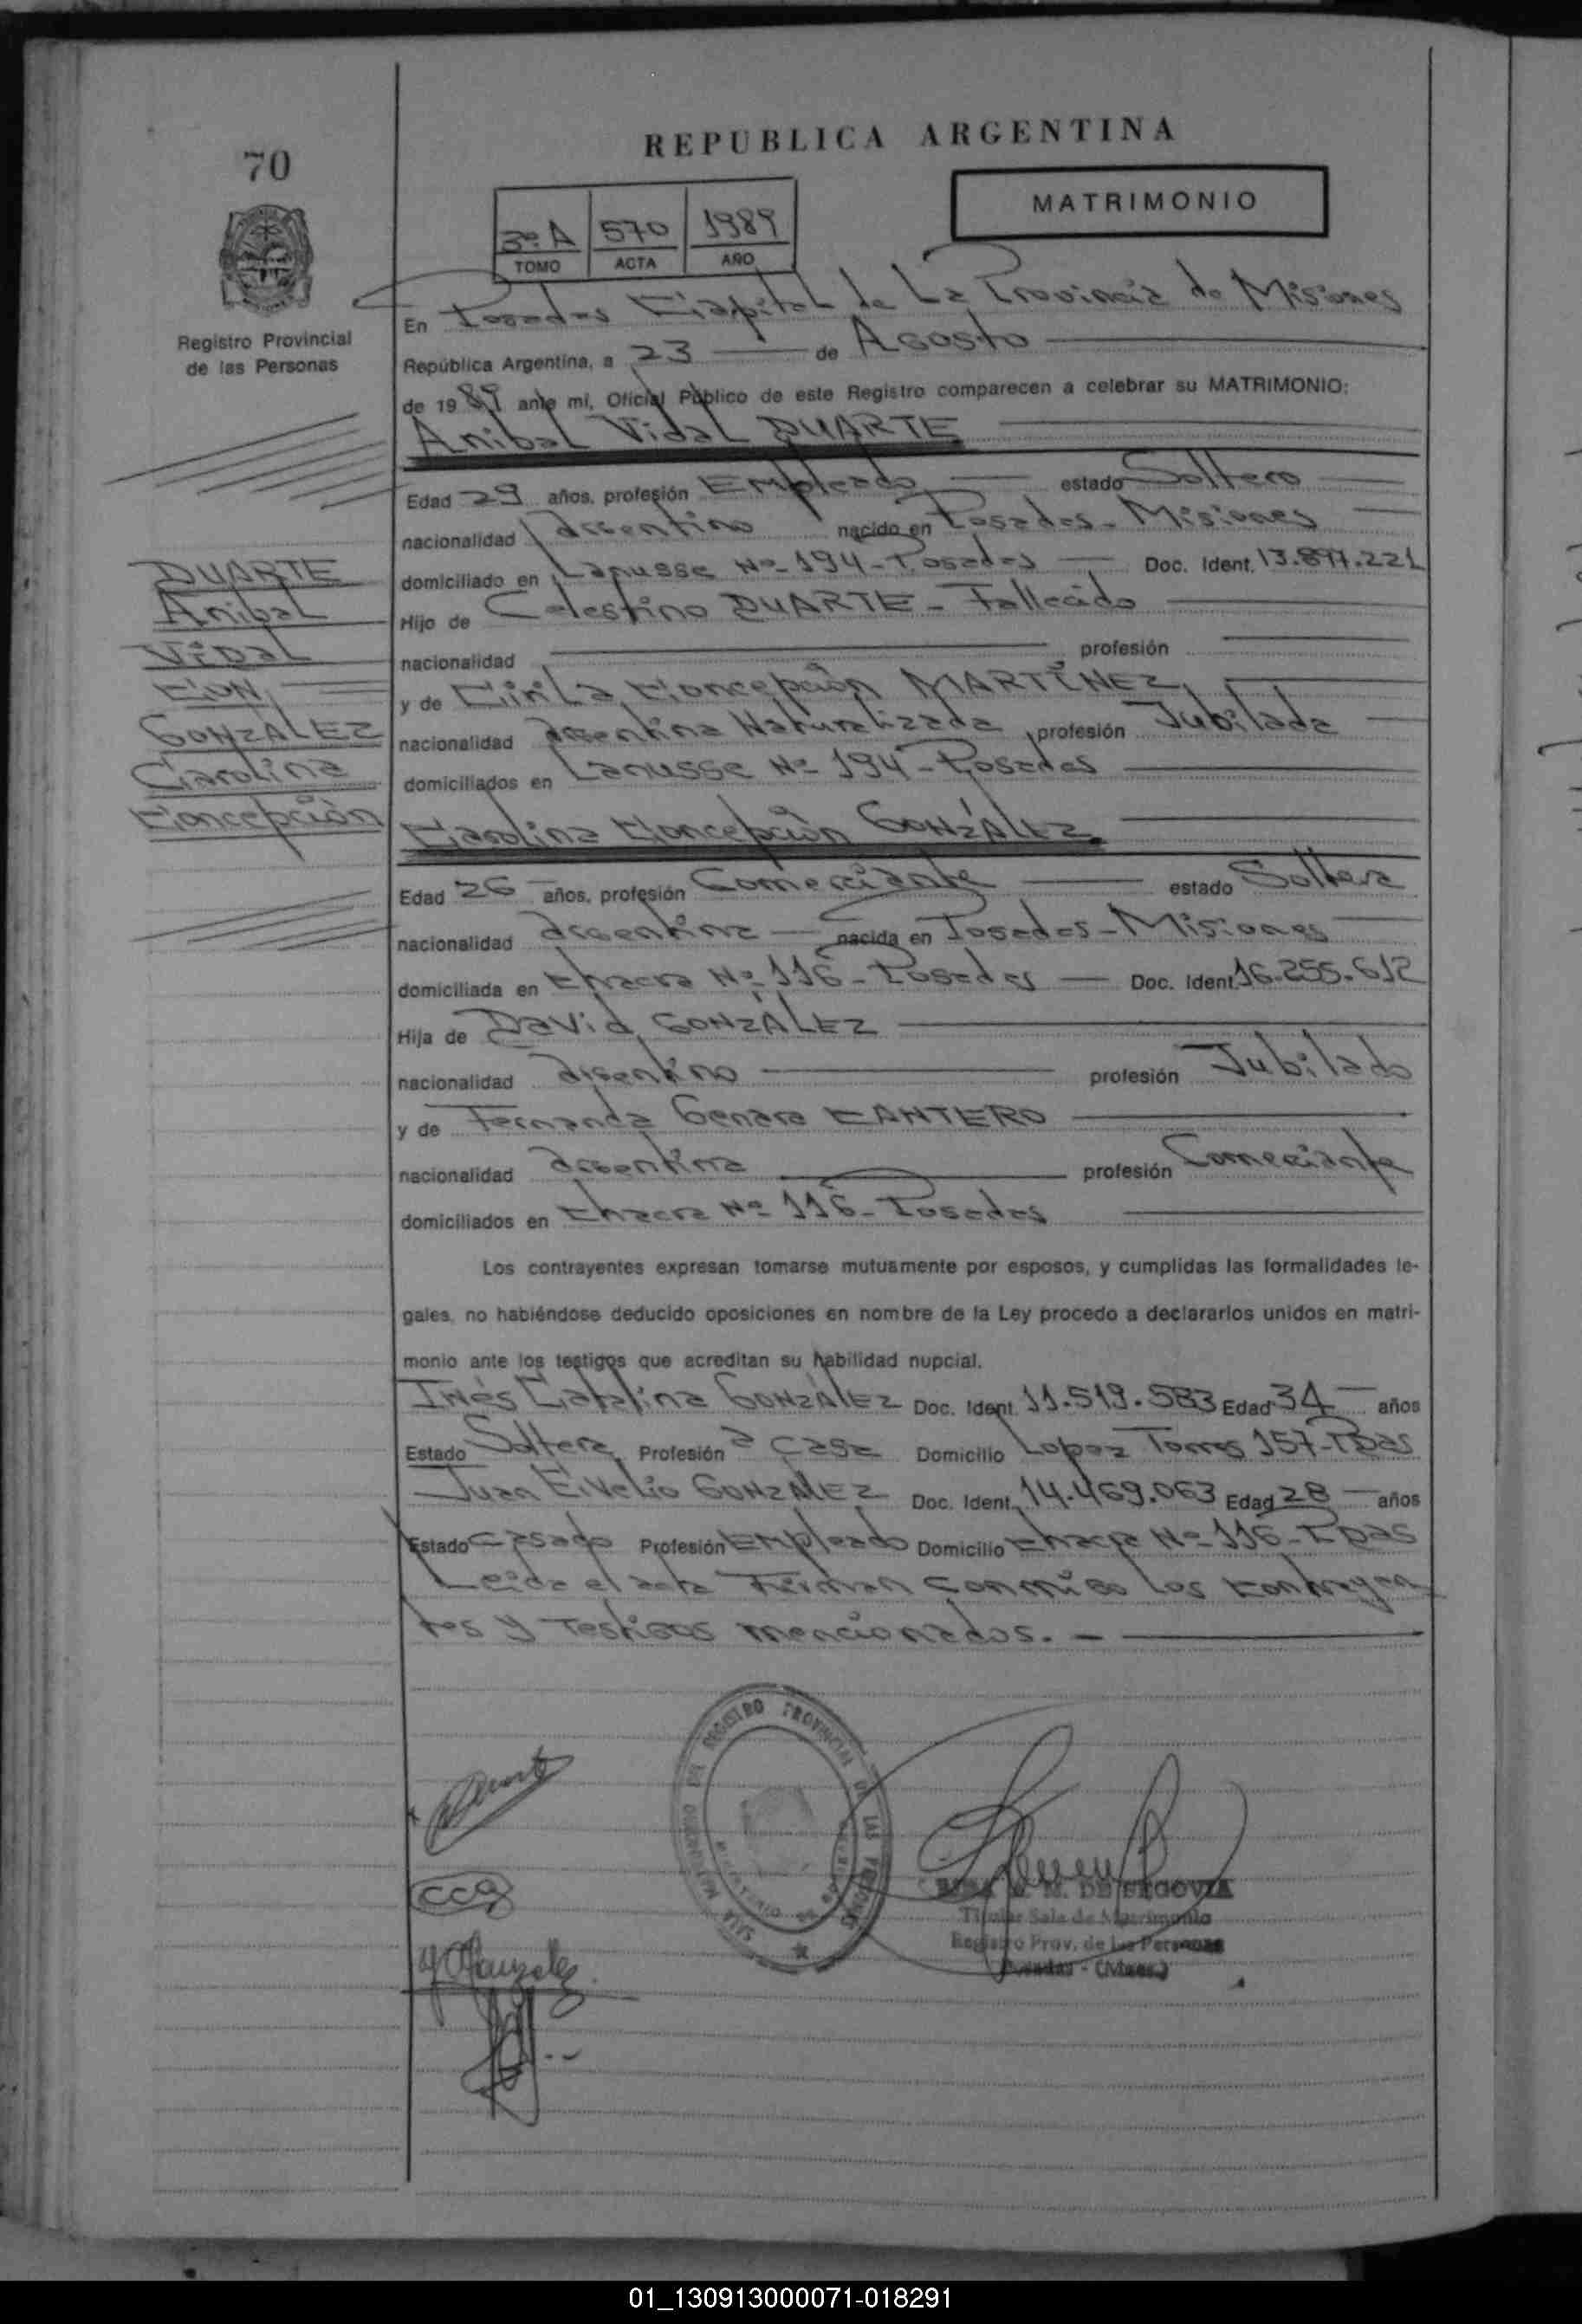 REPUBLICA ARGENTINA
70
MATRIMONIO
3º A 570 1989
TOMO ACTA AÑO
Registro Provincial
de las Personas
En Posadas Capital de La Provincia de Misiones
República Argentina, a 23 de Agosto
de 1989 ante mí, Oficial Público de este Registro comparecen a celebrar su MATRIMONIO:
Anibal Vidal DUARTE
Edad 29 años, profesión Empleado estado Soltero
nacionalidad Argentino nacido en Posadas - Misiones
domiciliado en Lanusse Nº 194 - Posadas Doc. Ident. 13.897.221
Hijo de Celestino DUARTE - Fallecido
nacionalidad profesión
y de Cirila Concepción MARTÍNEZ
nacionalidad Argentina Naturalizada profesión Jubilada
domiciliados en Lanusse Nº 194 - Posadas
Carolina Concepción GONZÁLEZ
DUARTE
Anibal
Vidal
CON
GONZÁLEZ
Carolina
Concepción
Edad 26 años, profesión Comerciante estado Soltera
nacionalidad Argentina nacida en Posadas - Misiones
domiciliada en Chacra Nº 116 - Posadas Doc. Ident. 16.255.612
Hija de David GONZÁLEZ
nacionalidad Argentino profesión Jubilado
y de Fernanda Genara CANTERO
nacionalidad Argentina profesión Comerciante
domiciliados en Chacra Nº 116 - Posadas
Los contrayentes expresan tomarse mutuamente por esposos, y cumplidas las formalidades le-
gales, no habiéndose deducido oposiciones en nombre de la Ley procedo a declararlos unidos en matri-
monio ante los testigos que acreditan su habilidad nupcial.
Inés Catalina GONZÁLEZ Doc. Ident. 11.519.583 Edad 34 años
Estado Soltera Profesión a Casa Domicilio Lopez Torres 157 - Pdas
Juan Evelio GONZALEZ Doc. Ident. 14.469.063 Edad 28 años
Estado Casado Profesión Empleado Domicilio Chacra Nº 116 - Pdas
Leida el acta Firman conmigo los contrayen
tes y Testigos mencionados. -
REGISTRO PROVINCIAL DE LAS PERSONAS
SALA MATRIMONIOS
CCG
DE SEGOVIA
Titular Sala de Matrimonio
Registro Prov. de las Personas
Posadas - (Mnes.)
01_130913000071-018291